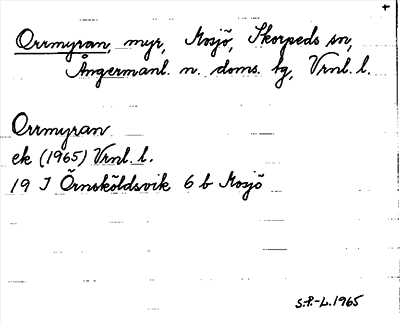 +
Orrmyran, myr, Mosjö, Skorpeds sn,
Ångermanl. n. doms. tg, Vrnl. l.
Orrmyran
ek (1965) Vrnl. l.
19 I Örnsköldsvik 6 b Mosjö
S.P.-L. 1965